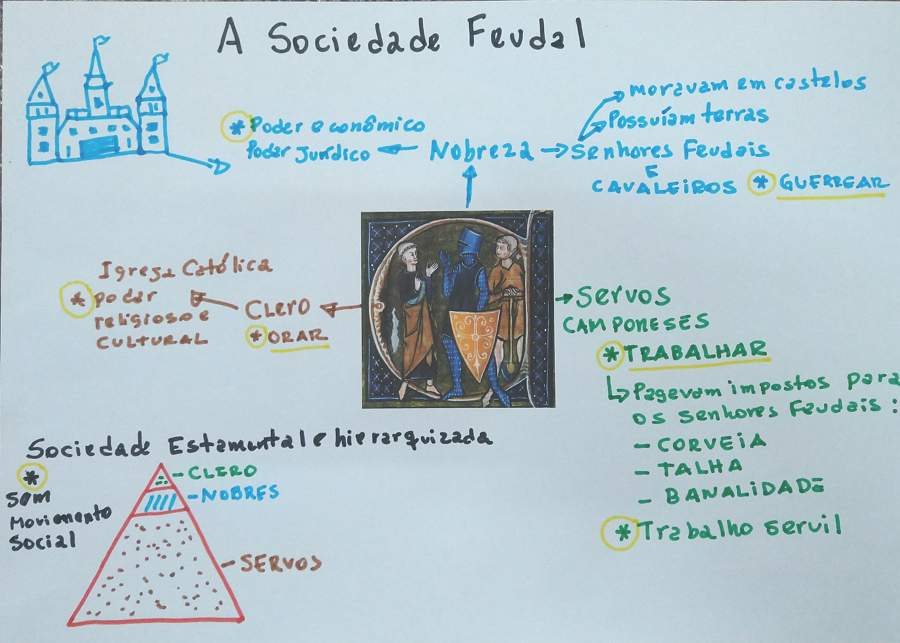 A Sociedade Feudal
* Poder econômico
Poder Jurídico
Nobreza
moravam em castelos
Possuíam terras
Senhores Feudais
E
CAVALEIROS * GUERREAR
Igreja Católica
* poder
religioso e
CULTURAL
CLERO
* ORAR
Servos
CAMPONESES
* TRABALHAR
Pagavam impostos para
os senhores Feudais:
- CORVEIA
- TALHA
- BANALIDADE
* Trabalho servil
Sociedade Estamental e hierarquizada
*
Sem
Movimento
Social
- CLERO
- NOBRES
- SERVOS